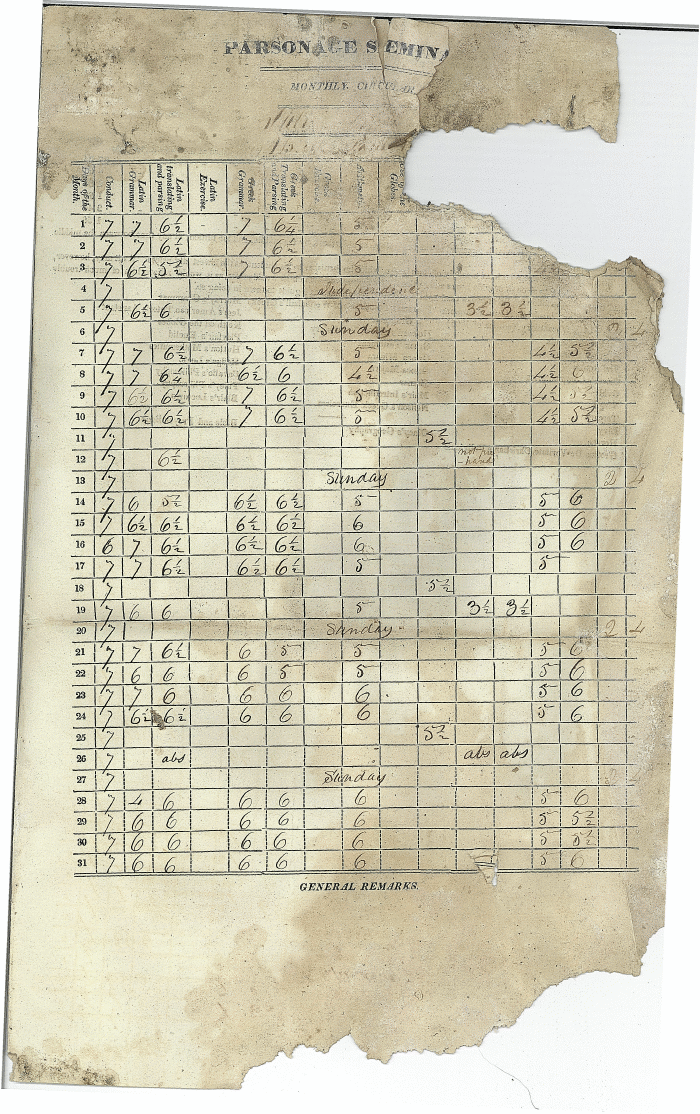 PARSONAGE SEMINA
MONTHLY. CIRCULAR
Days of the Month. Conduct. Latin Grammar. Latin translating and parsing Latin Exercise. Greek Grammar. Greek Translating and Parsing Globes.
1 7 7 6½ 7 6¼ 5
2 7 7 6½ 7 6½ 5
3 7 6½ 5½ 7 6½ 5
4 7 Independence
5 7 6½ 6 5 3½ 3½
6 7 Sunday 2 4
7 7 7 6½ 7 6½ 5 4½ 5½
8 7 7 6¼ 6½ 6 4½ 4½ 6
9 7 6½ 6½ 7 6½ 5 4½ 5½
10 7 6½ 6½ 7 6½ 5 4½ 5½
11 7 5½
12 7 6½ not hand
13 7 Sunday 2 4
14 7 6 5½ 6½ 6½ 5 5 6
15 7 6½ 6½ 6½ 6½ 6 5 6
16 6 7 6½ 6½ 6½ 6 5 6
17 7 7 6½ 6½ 6½ 5 5
18 7 5½
19 7 6 6 5 3½ 3½
20 7 Sunday 2 4
21 7 7 6½ 6 5 5 5 6
22 7 6 6 6 5 5 5 6
23 7 7 6 6 6 6 5 6
24 7 6½ 6½ 6 6 6 5 6
25 7 5½
26 7 abs abs abs
27 7 Sunday 2 4
28 7 4 6 6 6 6 5 6
29 7 6 6 6 6 6 5 5½
30 7 6 6 6 6 6 5 5½
31 7 6 6 6 6 6 5 6
GENERAL REMARKS.